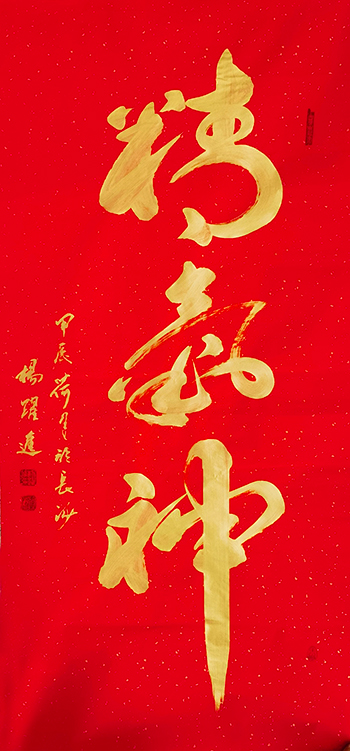 精氣神
甲辰荷月於長沙
楊躍進